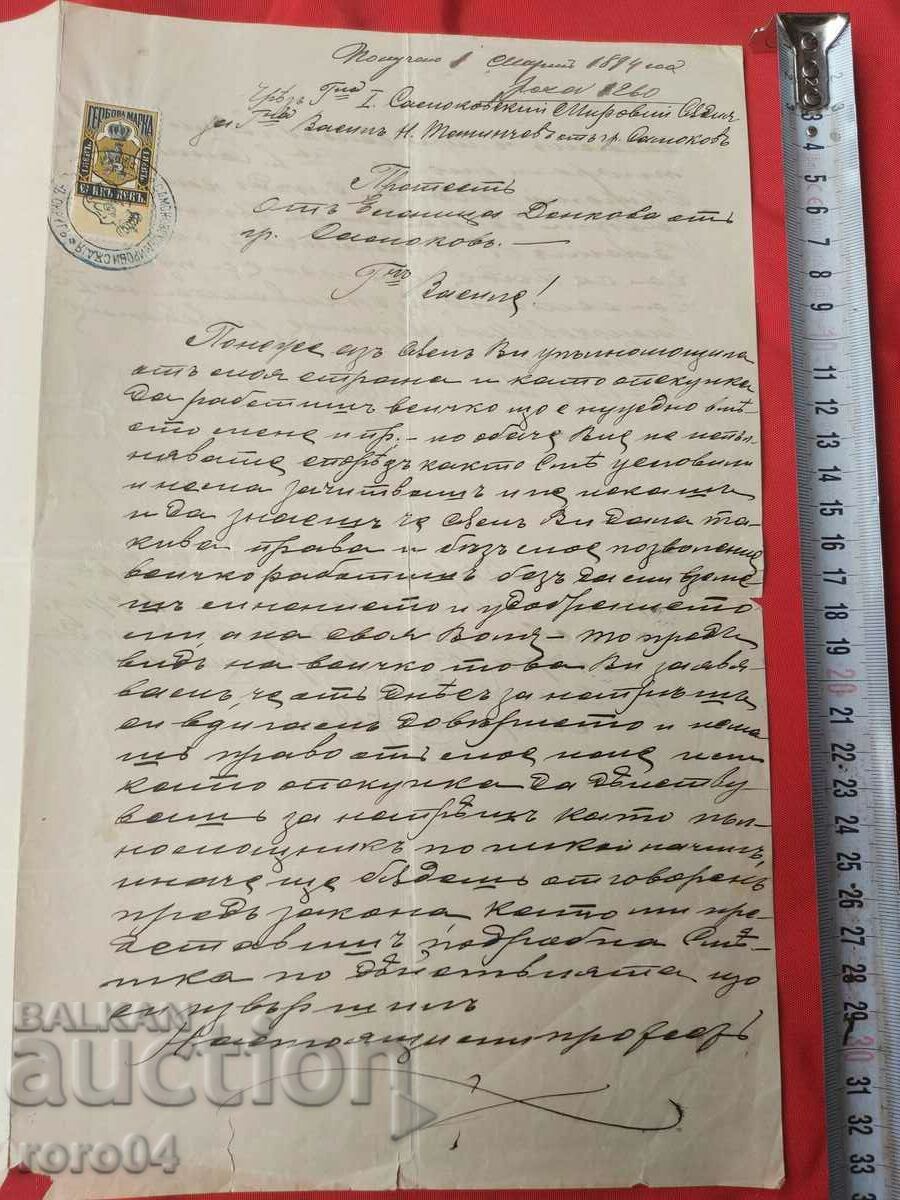 Получено 1 Мартъ 1894 год
1260
Чрѣзъ Гна I. Самоковский Мировий Сѫдия
за Гна Василъ Н. Маринчевъ отъ гр. Самоковъ
ГЕРБОВА МАРКА
Протестъ
отъ Еленица Донкова отъ
гр. Самоковъ. —
Гнъ Василе!
Понеже азъ съмъ Ви упълномощила
отъ моя страна и като опекунка
да работишъ всичко що е нуждно вмѣ-
сто мене и пр. — но обаче Вие не испъл-
нявате споредъ както сме условили
и не ма зачитвашъ и не искашъ
и да знаешъ че съмъ Ви дала та-
кива права и безъ мое позволение
всичко работишъ безъ да ми взема-
шъ мнението и удобрението
ми, а на своя воля — то предъ
видъ на всичко това Ви заявя-
вамъ, че отъ днесъ за напрѣшъ
си вдигамъ довѣрието и нема-
шъ право отъ мое име или
като опекунка да дѣйству-
вашъ за напрѣшъ като пъл-
номощникъ по никой начинъ,
иначе ще бѫдешъ отговоренъ
предъ закона, като ми пре-
дставишъ подробна смѣ-
тка по дѣйствията що
си извършилъ
Настоящия ми протестъ
BALKAN
auction
roro04
3
4
5
6
7
8
9
11
12
13
14
15
16
17
18
19
20
21
22
23
24
25
26
27
28
29
30
31
32
33